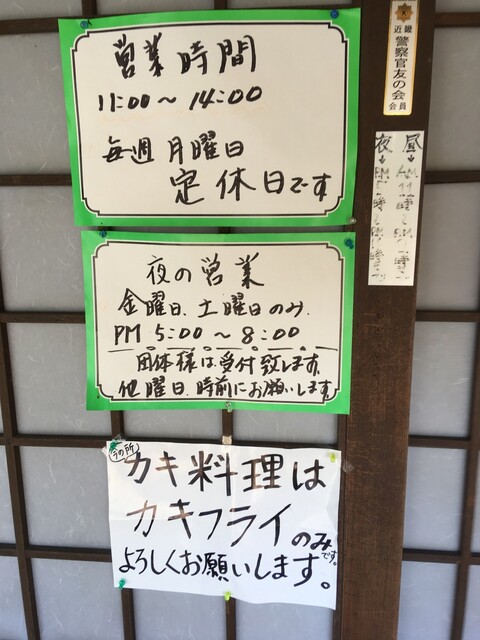 営業時間
11:00～14:00
毎週月曜日
定休日です
夜の営業
金曜日.土曜日のみ.
PM 5:00～8:00
団体様は.受付致します.
他曜日.時前にお願いします
今の所
カキ料理は
カキフライのみです。
よろしくお願いします。
近畿
警察官友の会
会員
昼
夜